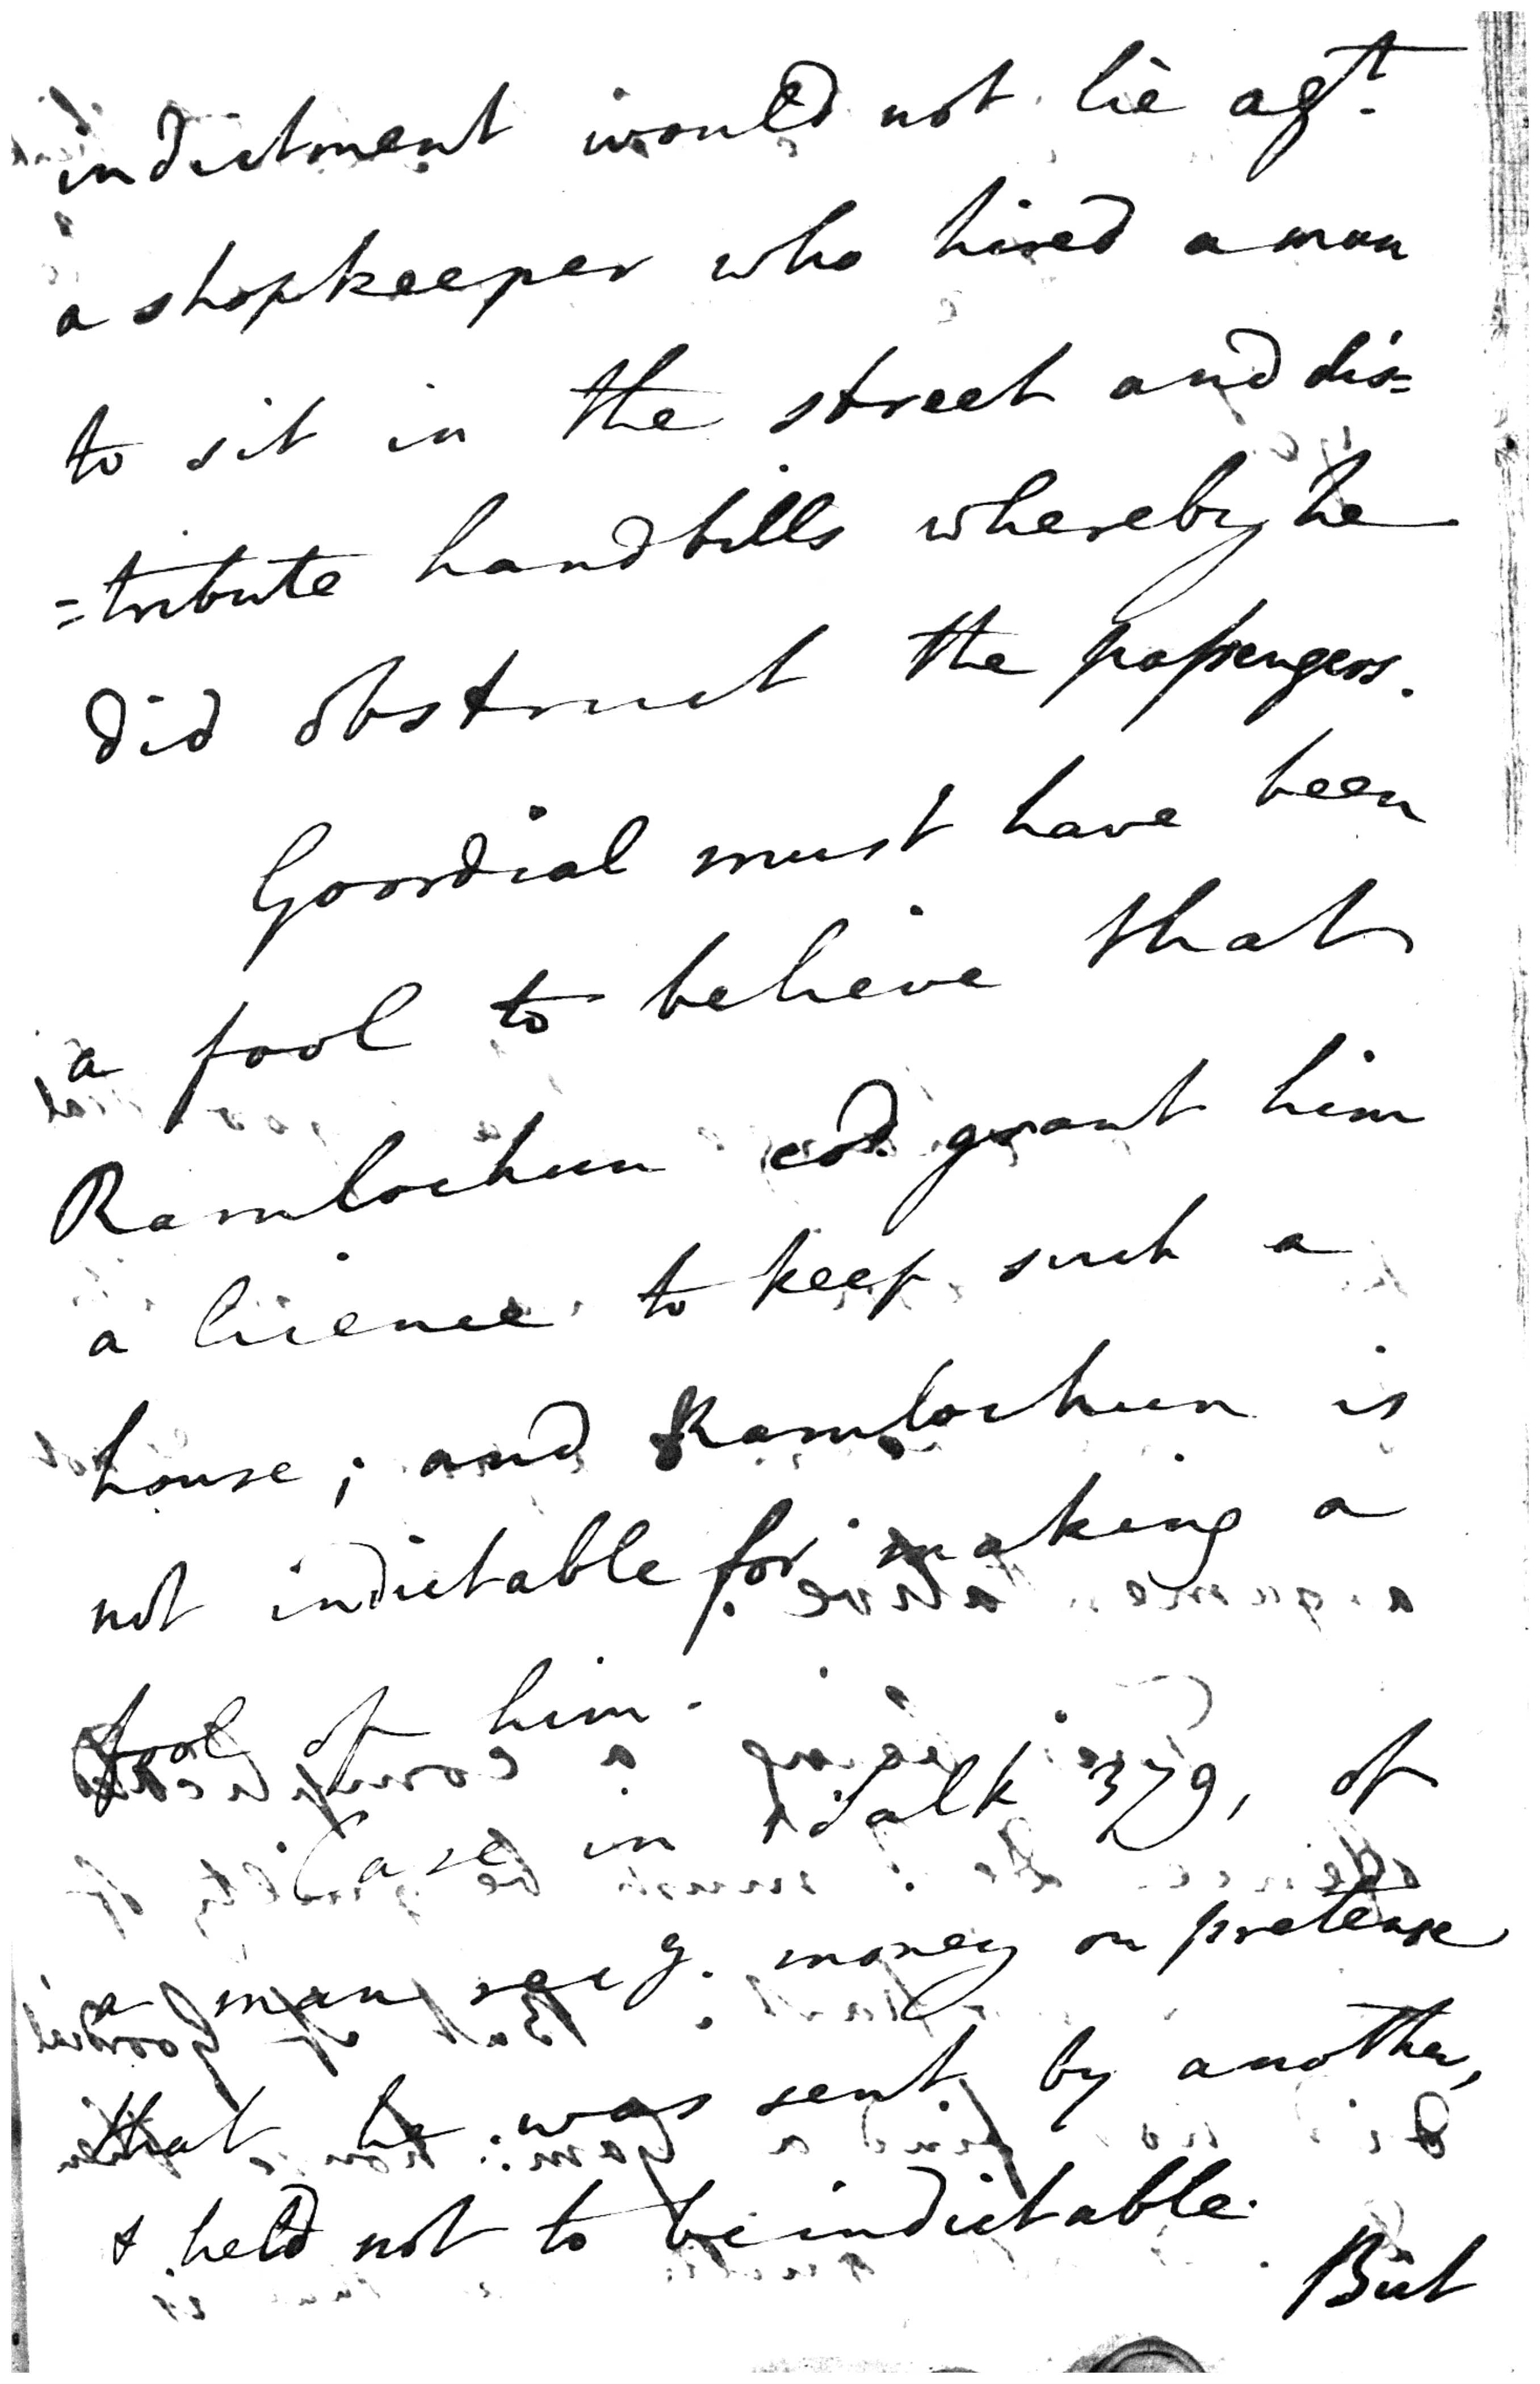 indictment would not lie agt.
a shopkeeper who hired a man
to sit in the street and dis=
=tribute handbills whereby he
did obstruct the passengers.
Goordial must have been
a fool to believe that
Ramlochun cod. grant him
a licence to keep such a
house; and Ramlochun is
not indictable for making a
fool of him.
Case in Salk 379, of
a man recg. money on pretense
that he was sent by another,
& held not to be indictable.
But